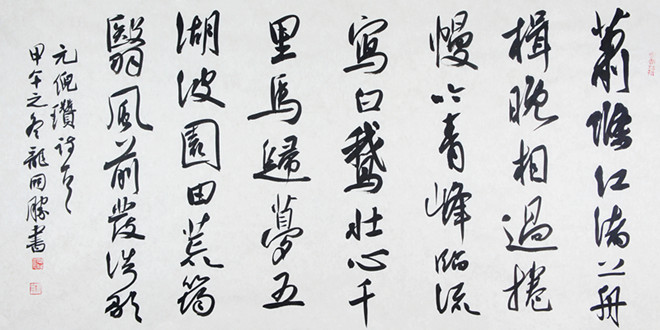 蕭條江渚上舟
楫晚相過捲
幔吟青峰臨流
寫白鵝壯心千
里馬歸夢五
湖波園田荒筠
翳風前發浩歌
元倪瓚詩一首
甲午之冬龍開勝書